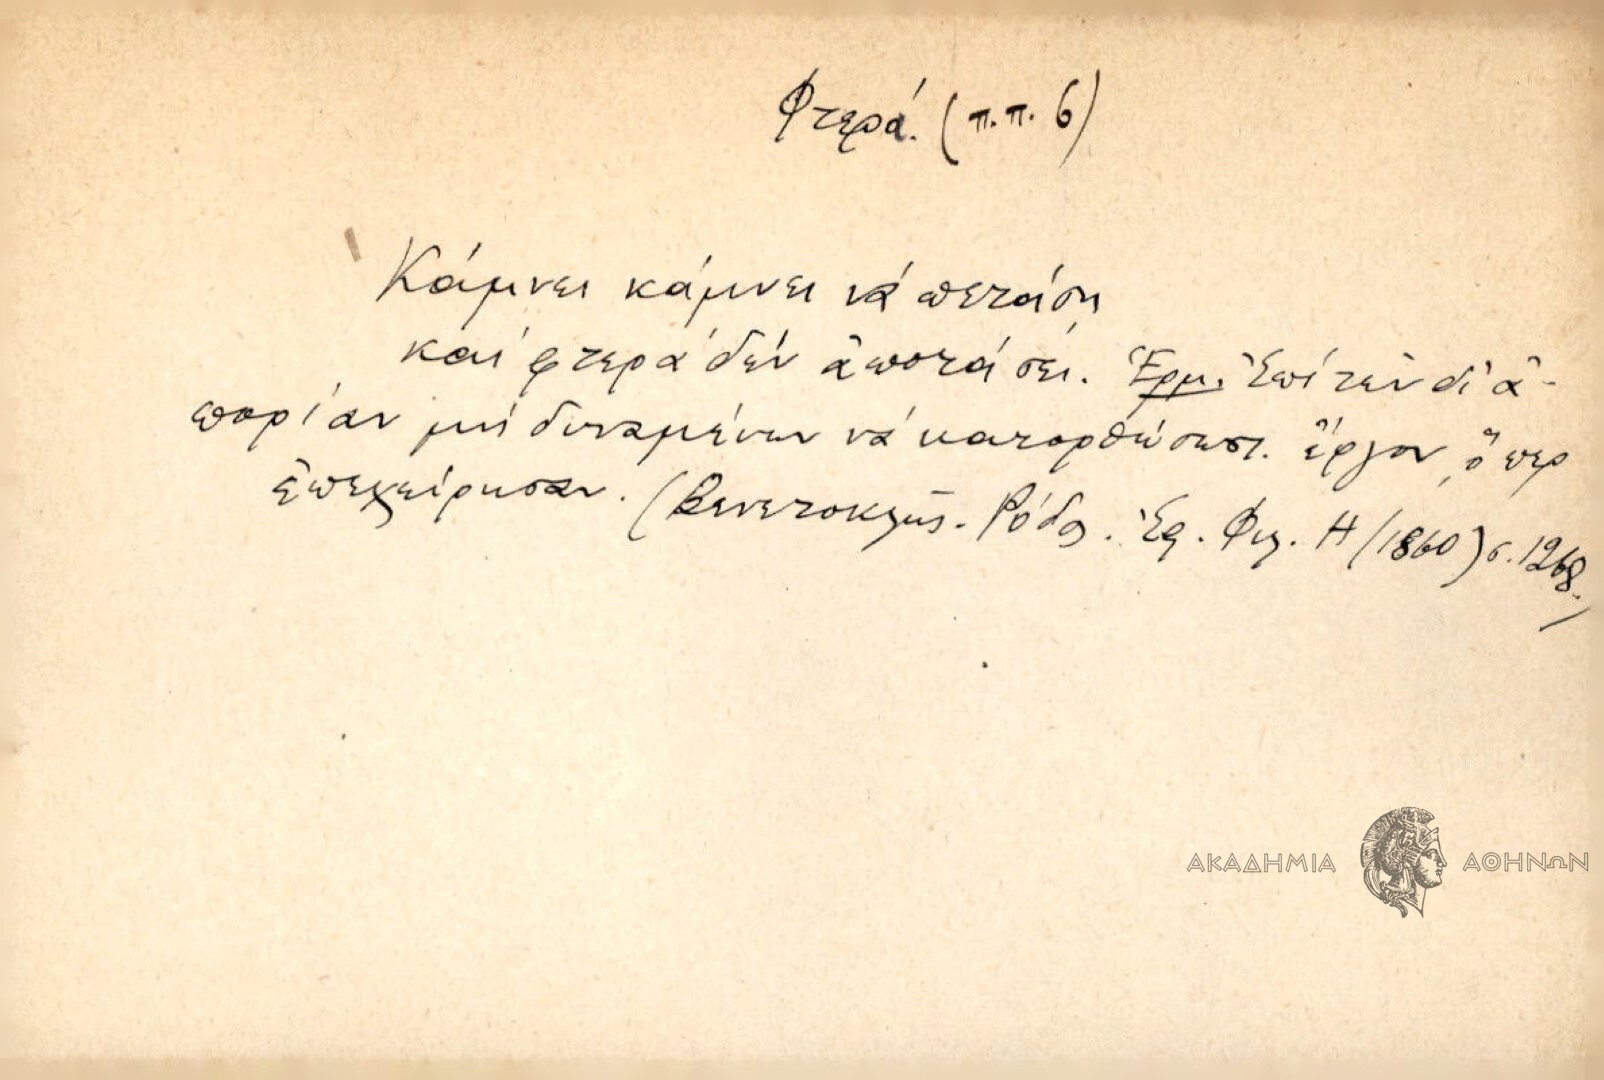 Φτερά. (π.π. 6)
Κάμνει κάμνει νά πετάση
καί φτερά δέν ἀποτάσει. Ἑρμ. Ἐπί τῶν δι' ἀ-
πορίαν μή δυναμένων νά κατορθώσωσι. ἔργον, ὅπερ
ἐπεχείρησαν. (Βενετοκλῆς. Ρόδος. Ἐφ. Φιλ. Η (1860) σ. 1268.)
ΑΚΑΔΗΜΙΑ ΑΘΗΝΩΝ